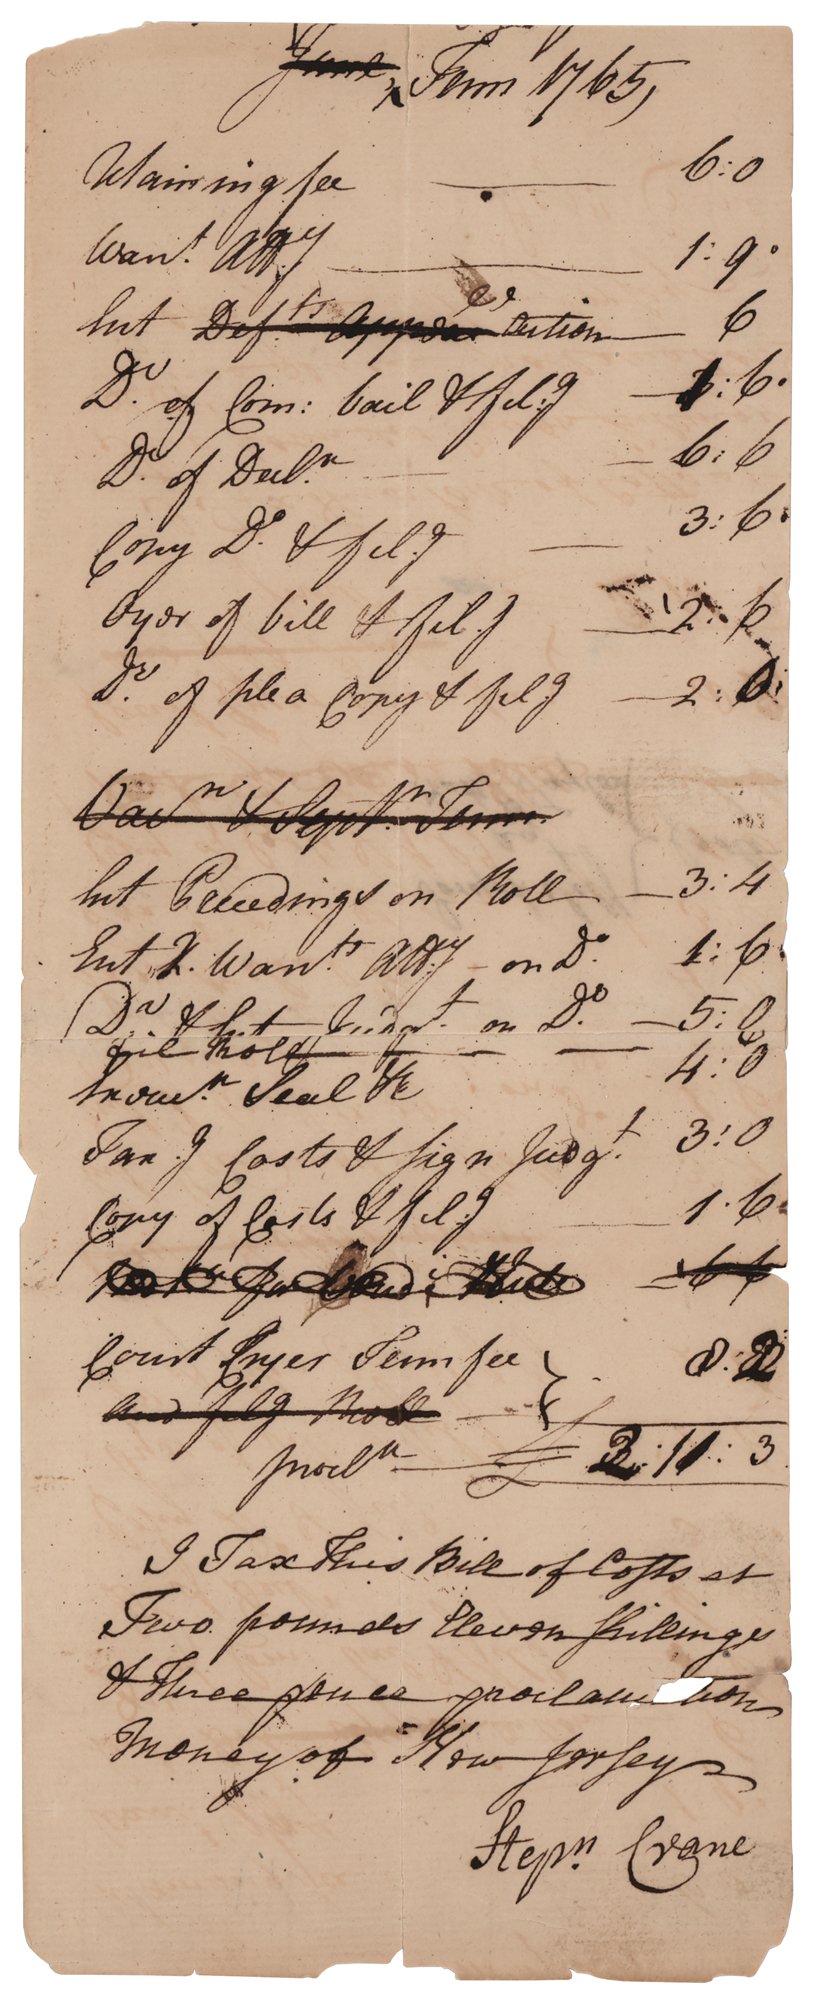 June Term 1765,
Retaining fee 6:0
Warr.t Att.y 1:9
Ent Def.ts Appear 6
D.o of Com: bail & fil.g 1:6
D.o of Decl.n 6:6
Copy D.o & fil.g 3:6
Oyer of bill & fil.g 2:6
D.o of plea Copy & filg 2:0
Vac.n & Sept.r Term
Ent Proceedings on Roll 3:4
Ent 2. Warr.ts Att.y on D.o 1:6
D.o & Ent Judg.t on D.o 5:0
fil Roll
Seal &c 4:0
Tax.g Costs & sign Judg.t 3:0
Copy of Costs & fil.g 1.6
for 6 6
Court Cryer Term fee
and filg Roll
procl.n £ 2:11:3
I Tax This Bill of Costs at
Two pounds Eleven Shillings
& Three pence proclamation
Money of New Jersey
Step.n Crane